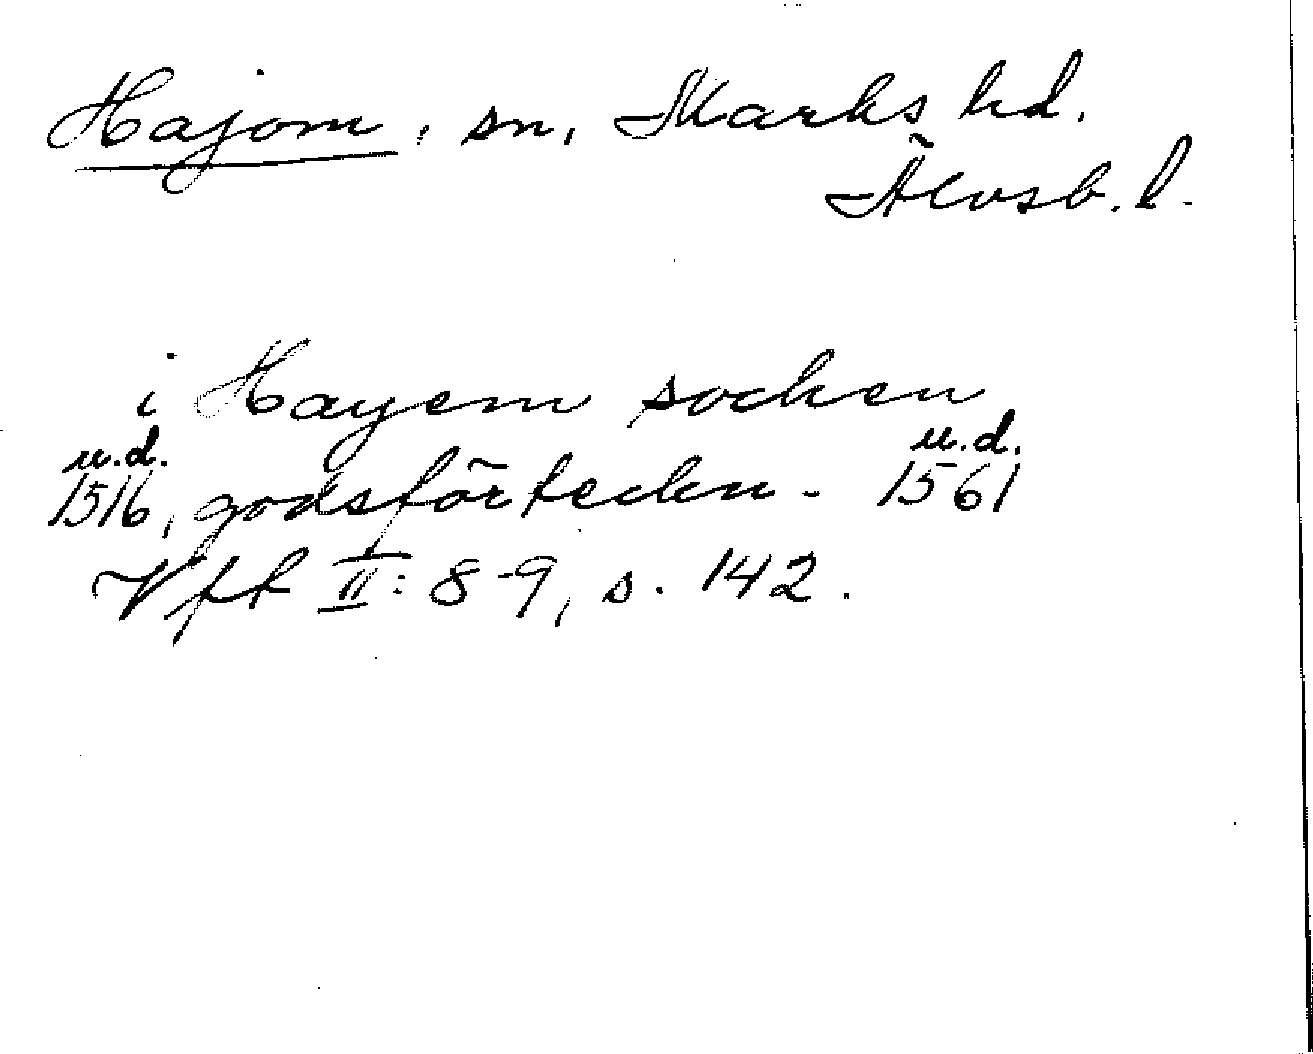 Hajom, sn, Marks hd.
Älvsb. l.
i Hayem sochen
u.d. u.d.
1516, godsförteckn. 1561
Vft II: 8-9, s. 142.